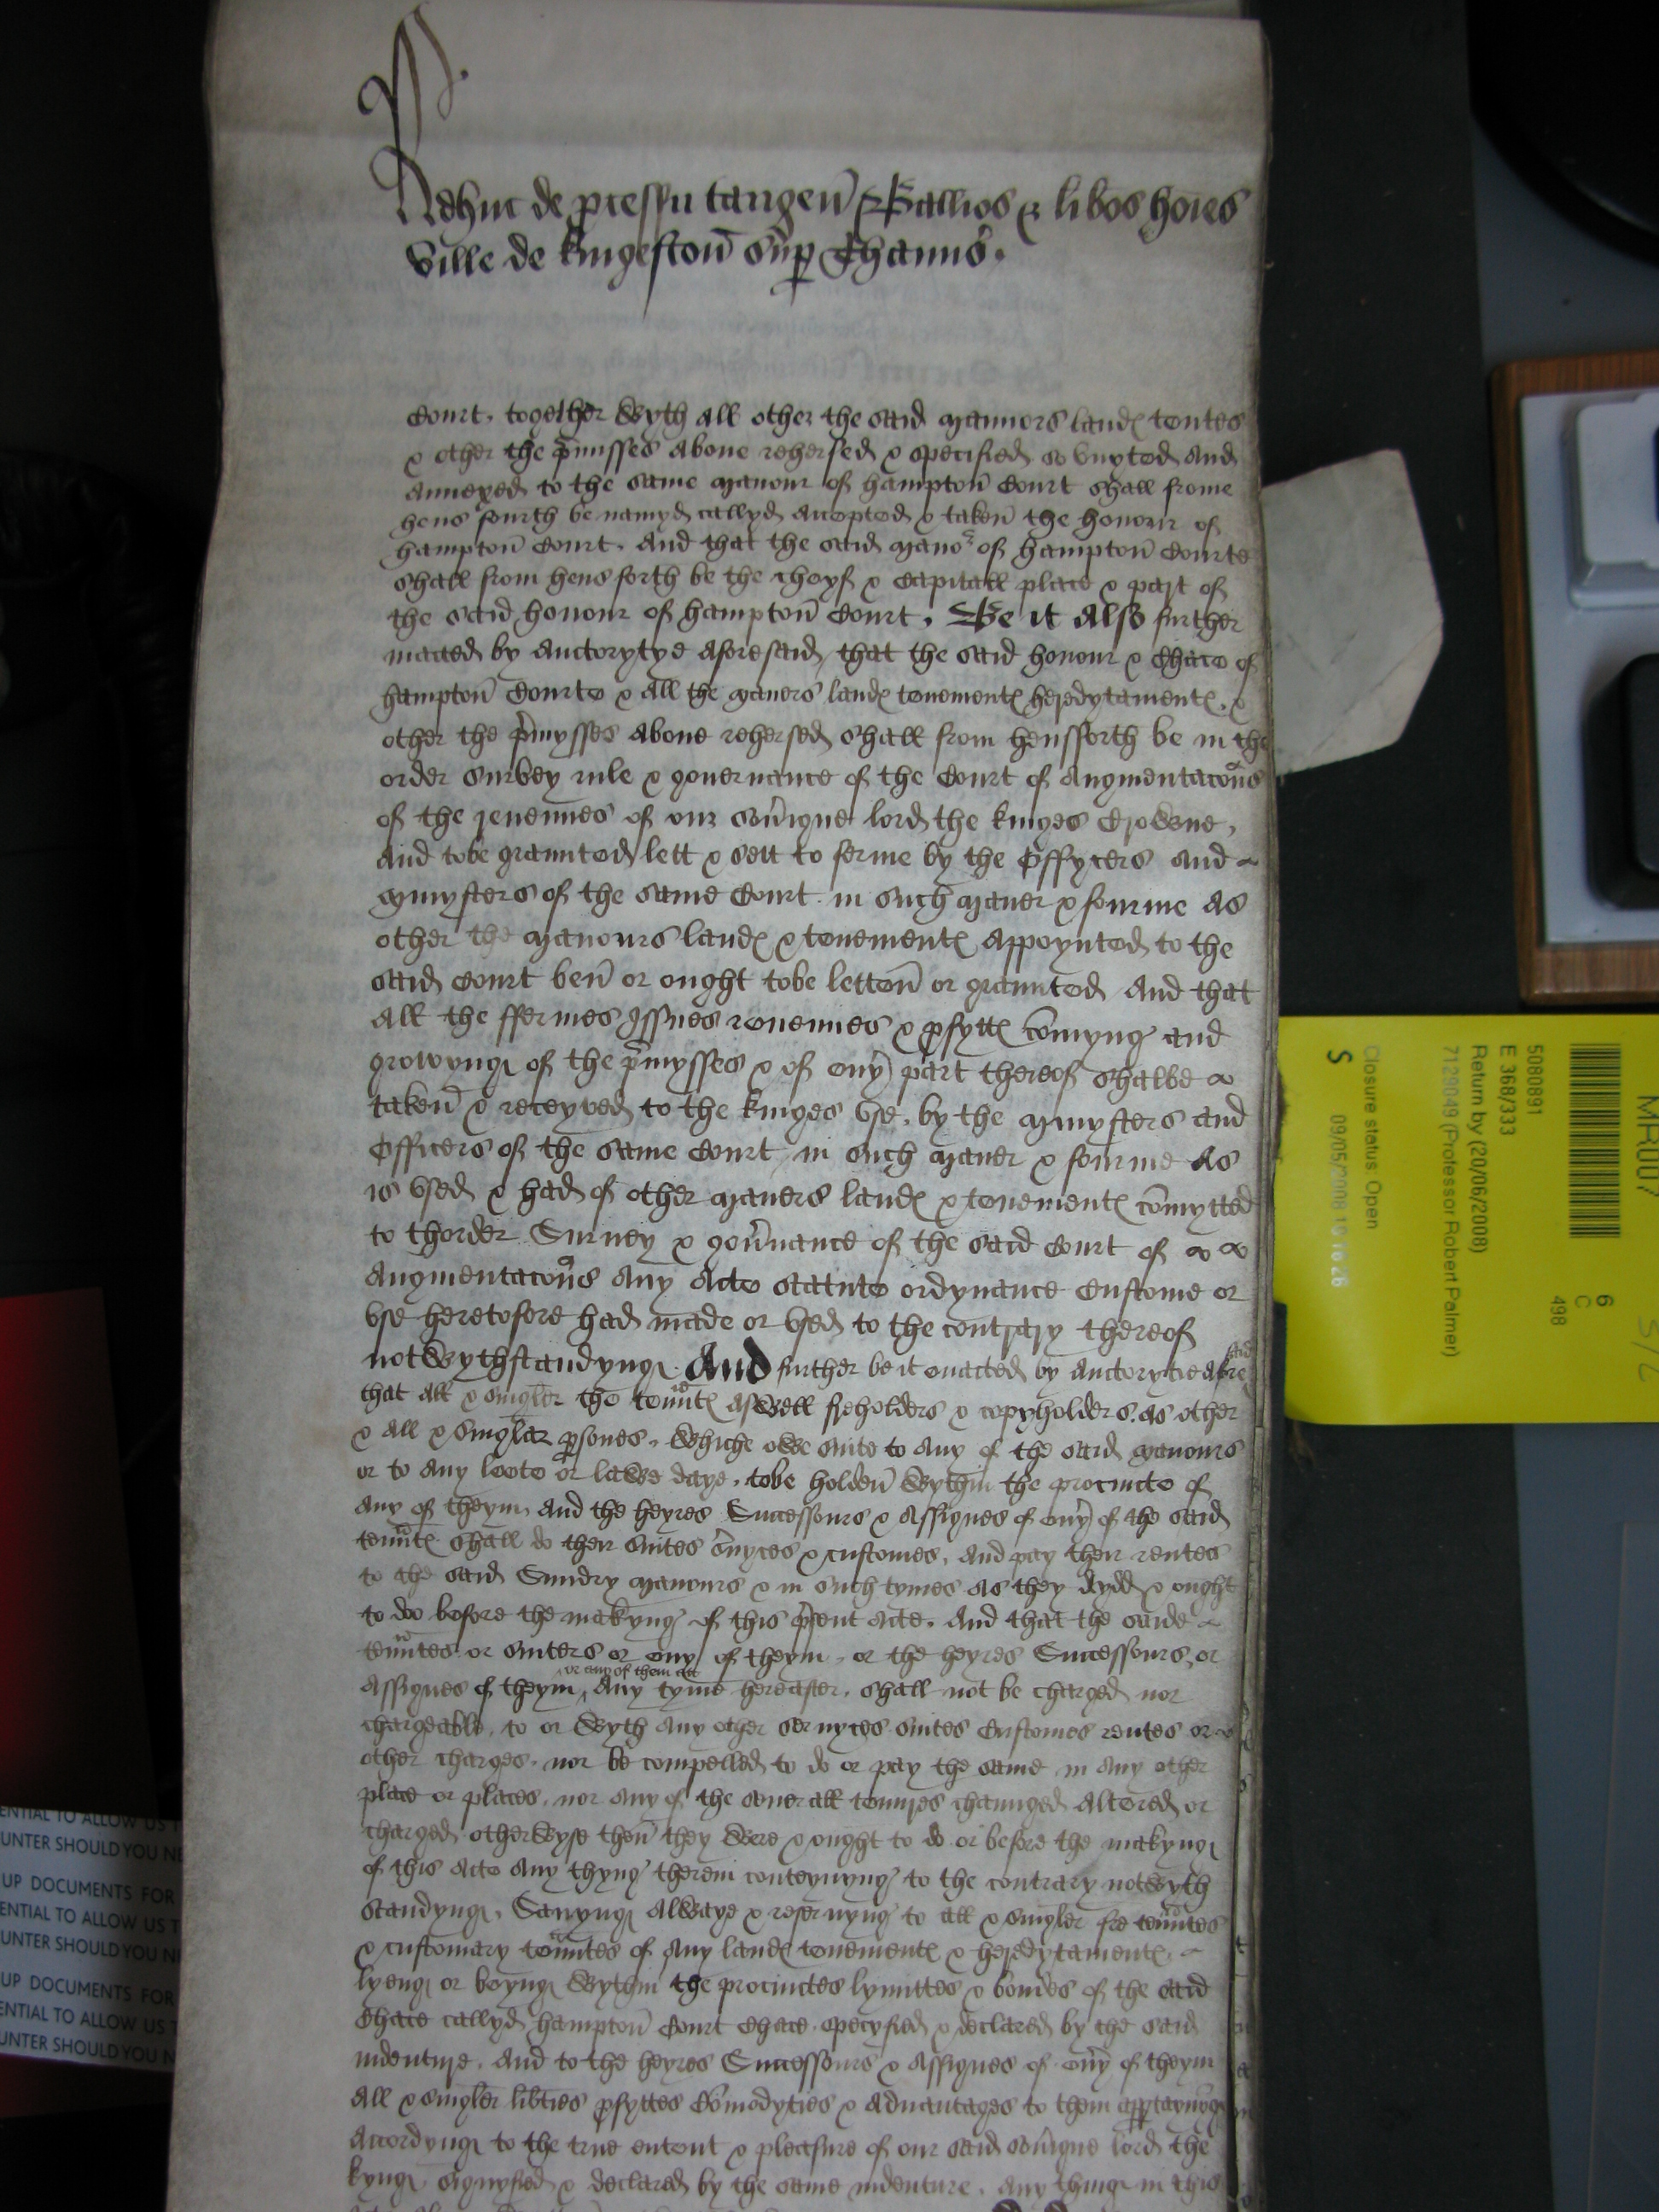 Adhuc de p̱cessu tangen̄ Ballios & lib̄os hōies
Ville de kingeston̄ sup̱ Thamis̄.
Court. together wyth all other the said manners land℮ ten̄tes
& other the p̄misses aboue rehersed & specified so vnyted And
Annexed to the same manour of hampton̄ Court shall frome
hens fourth be namyd callyd accepted & taken̄ the honour of
hampton̄ Court. And that the said manor of hampton̄ Courte
shall from hens forth be the cheyf & Capitall place & part of
the said honour of hampton̄ Court. Be it Also further
inacted by auctorytye aforesaid that the said honour & Chace of
hampton̄ Courte & all the maners land℮ tenement℮ heredytament℮ &
other the p̄mysses aboue rehersed shall from hensforth be in the
order survey rule & gouernance of the Court of Augmentacōns
of the reuenues of our soūigne lord the kinges Crowne,
And tobe graunted lett & sett to ferme by the Offycers And
mynysters of the same Court in such maner & fourme As
other the manours land℮ & tenement℮ Appoynted to the
said Court ben̄ or ought tobe letten̄ or graunted And that
all the ffermes Issues reuenues & p̱fytt℮ com̄yng and
growyng of the p̄mysses & of eūy part thereof shalbe
taken̄ & receyved to the kinges vse, by the mynysters and
Officers of the same Court in such maner & fourme As
is vsed & had of other maners land℮ & tenement℮ com̄ytted
to thorder Suruey & goūnance of the said Court of
Augmentacōns Any Acte statute ordynance Custome or
vse heretofore had made or vsed to the contrary thereof
notwythstandyng. And further be it enacted by auctorytie afore said
that all & singler the ten̄nt℮ aswell freholders & copyholders. as other
& all & singler p̱sones. whiche owe suite to any of the said manours
or to any leete or lawe daye. tobe holden̄ wythin the procincte of
any of theym, And the heyres Successours & Assignes of eūy of the said
ten̄nt℮ shall do then suites s̄uyces & customes, And pay then rentes
to the said Sundry manours & in such tymes as they dydd & ought
to doo before the makyng of this p̄sent acte. And that the saide
ten̄ntes or suters or eny of theym, or the heyres Successours or
Assignes of theym or any of them att Any tyme hereafter, shall not be charged nor
chargeable, to or wyth any other seruyces suites Customes rentes or
other charges. nor be compelled to do or pay the same in any other
place or places, nor any of the seuerall tenures chaunged altered or
charged otherwyse then̄ they were & ought to do or before the makyng
of this acte any thyng therein conteynyng to the contrary notwyth
standyng. Sauyng alwaye & reseruyng to all & singler fre ten̄ntes
& customary ten̄ntes of any land℮ tenement℮ & heredytament℮.
lyeng or beyng wythin the procinctes lymittes & boundes of the said
Chace callyd hampton̄ Court Chace. specyfied & declared by the said
indenture. And to the heyres Successours & Assignes of eūy of theym
All & singler lib̄ties p̱fyttes Com̄odyties & Aduantages to them app̱taynyng
Accordyng to the true entent & pleasure of our said soūigne lord the
kyng signyfied & declared by the same indenture. Any thing in this
MR007
50808911
E 368/333
Return by (20/06/2008)
7129049 (Professor Robert Palmer)
Closure status: Open
S
09/05/2008
6
C
498
ENTIAL TO ALLOW US T
UNTER SHOULD YOU NE
UP DOCUMENTS FOR
ENTIAL TO ALLOW US T
UNTER SHOULD YOU N
UP DOCUMENTS FOR
ENTIAL TO ALLOW US T
UNTER SHOULD YOU N